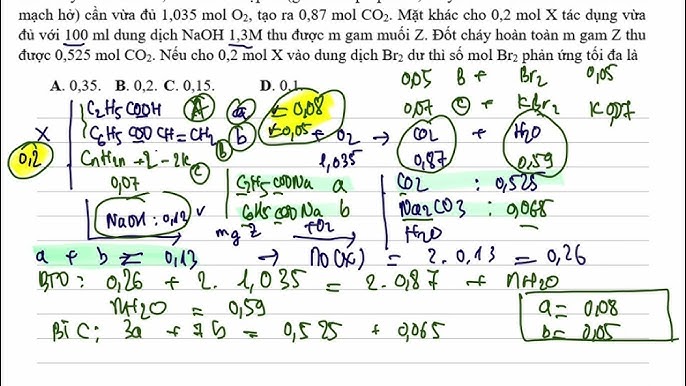 mạch hở) cần vừa đủ 1,035 mol O₂, tạo ra 0,87 mol CO₂. Mặt khác cho 0,2 mol X tác dụng vừa
đủ với 100 ml dung dịch NaOH 1,3M thu được m gam muối Z. Đốt cháy hoàn toàn m gam Z thu
được 0,525 mol CO₂. Nếu cho 0,2 mol X vào dung dịch Br₂ dư thì số mol Br₂ phản ứng tối đa là
A. 0,35. B. 0,2. C. 0,15. D. 0,1.
0,05 B + Br₂ 0,05
0,07 C + KBr₂ K 0,07
C₂H₅COOH A a = 0,08
X C₆H₅COOCH=CH₂ b = 0,05 + O₂ → CO₂ + H₂O
B
0,2 CnH2n+2-2k C 1,035 0,87 0,59
0,07
NaOH : 0,13
C₂H₅COONa a
C₆H₅COONa b
CO₂ : 0,525
Na₂CO₃ : 0,065
H₂O
mg Z +O₂
a + b = 0,13 → nO(X) = 2.0,13 = 0,26
BTO: 0,26 + 2. 1,035 = 2.0,87 + nH₂O
nH₂O = 0,59
BTC: 3a + 7b = 0,525 + 0,065
a = 0,08
b = 0,05